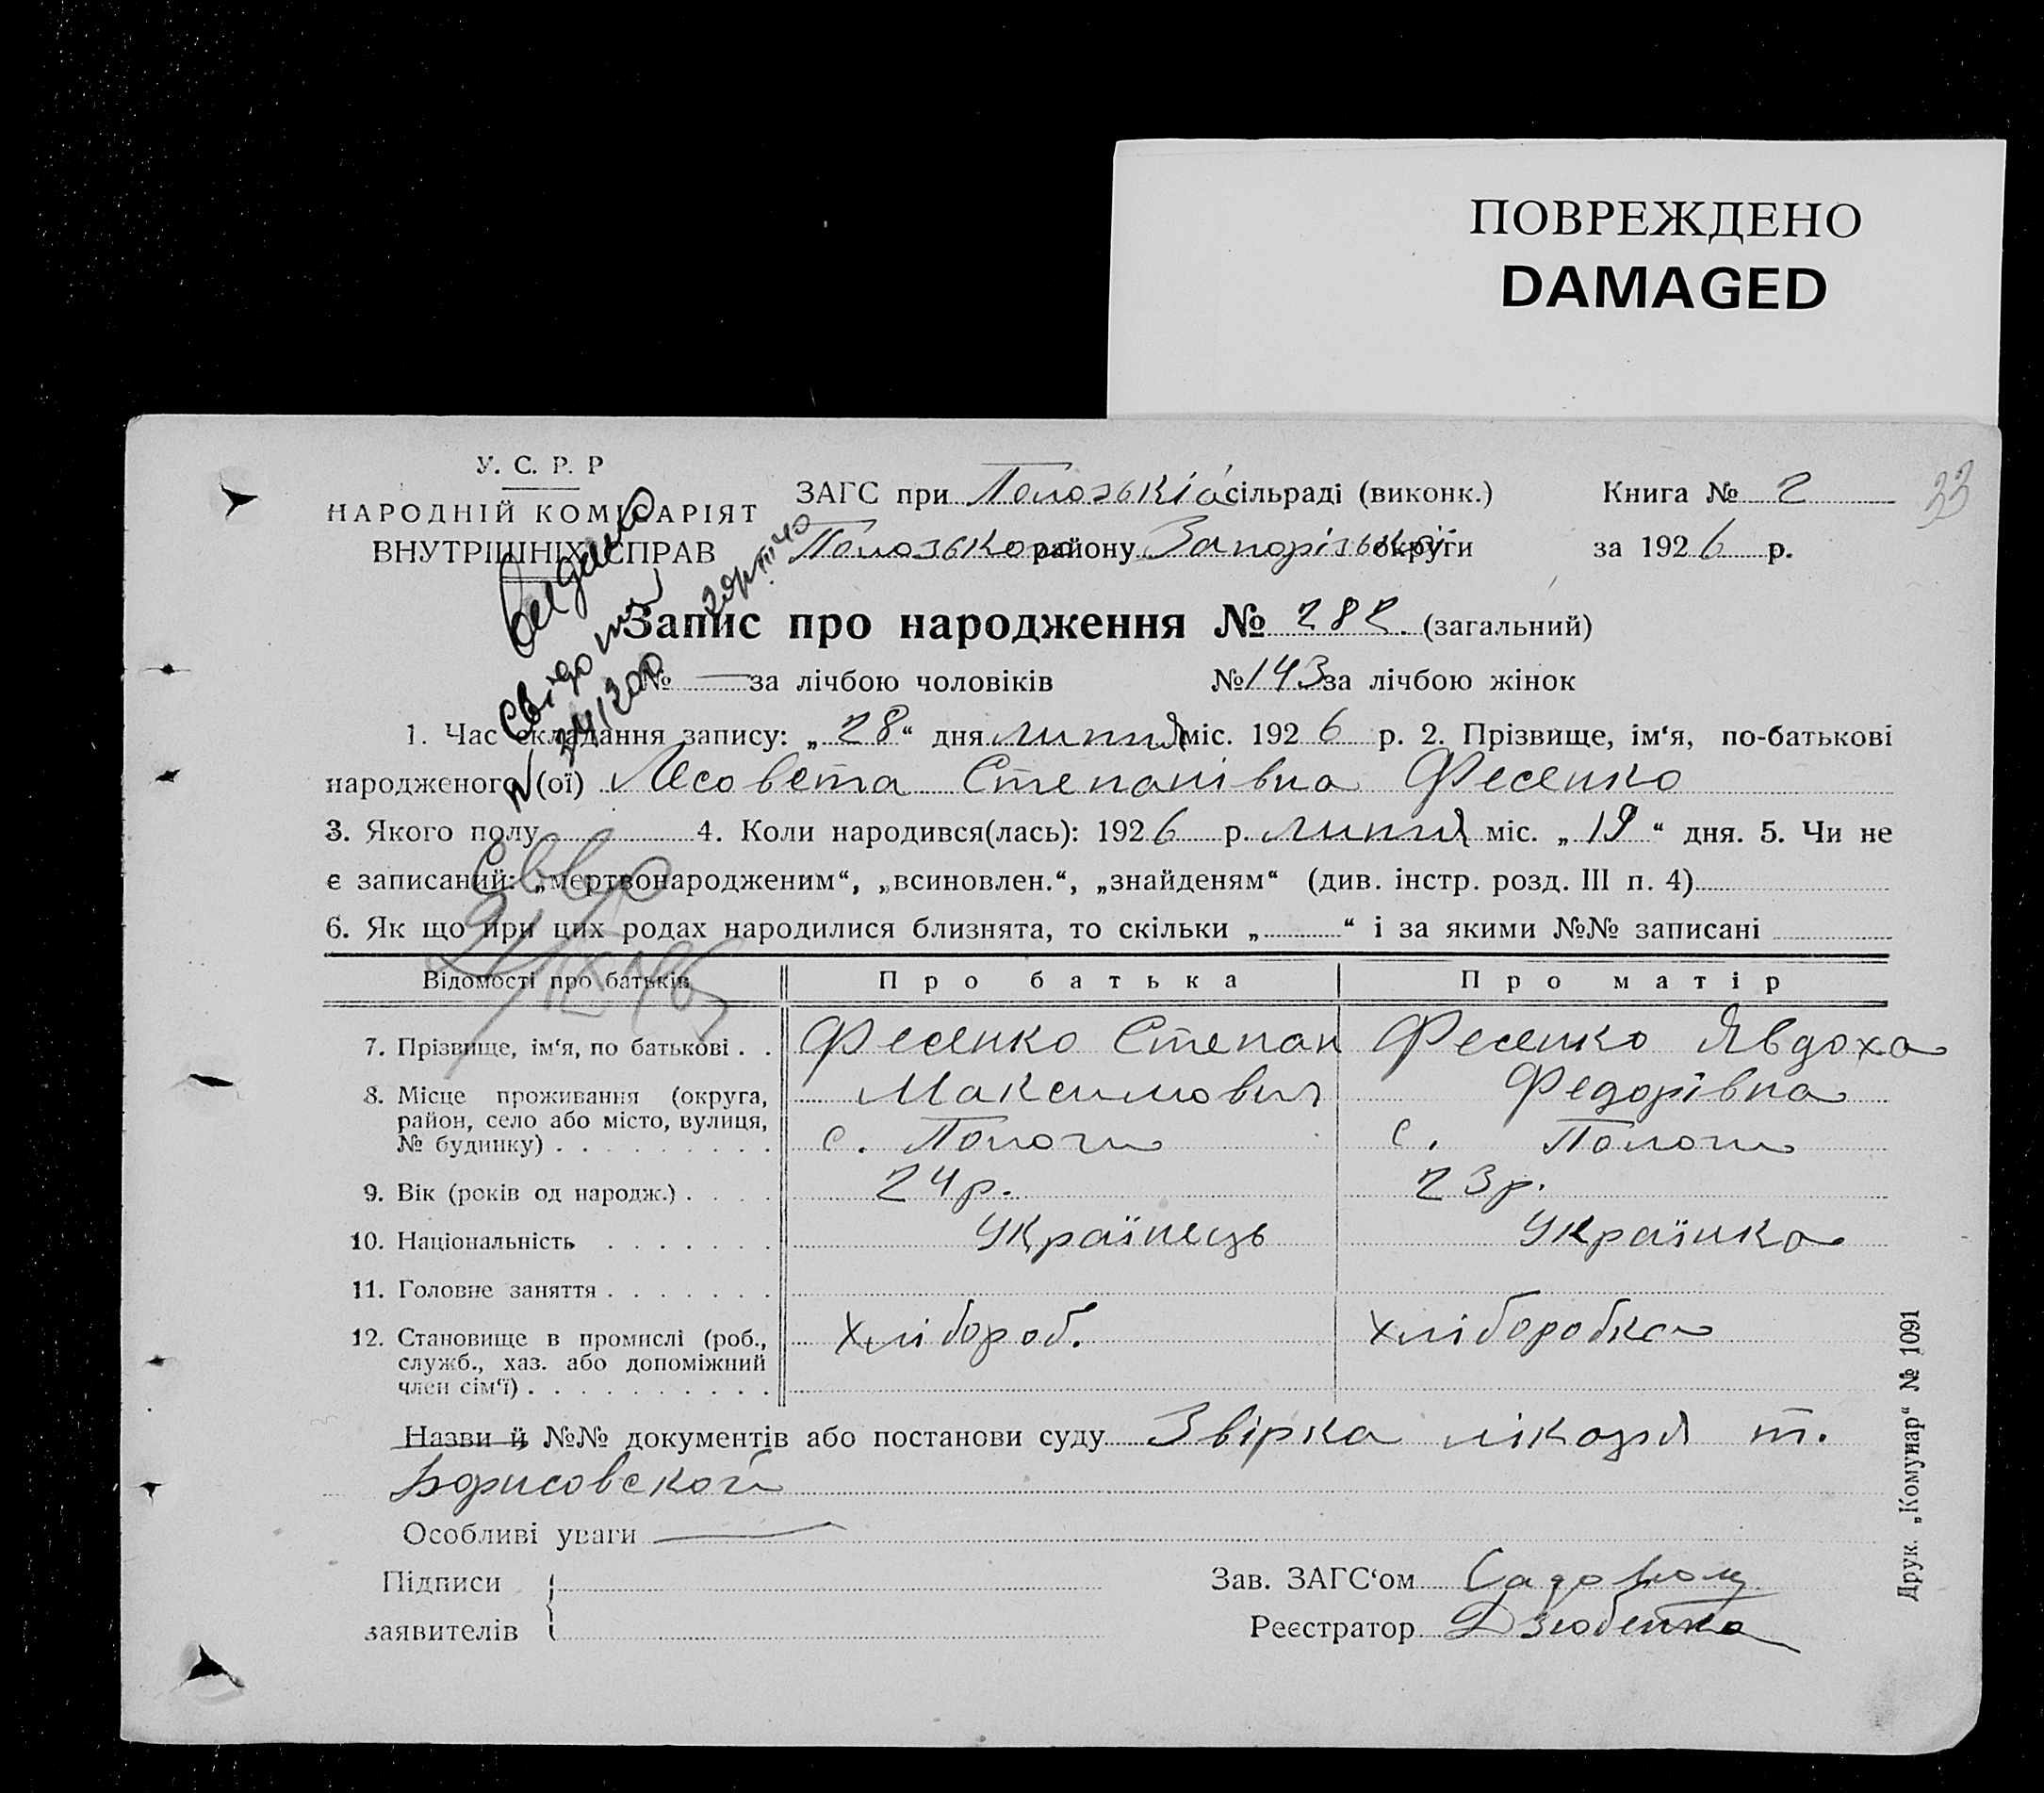 ПОВРЕЖДЕНО
DAMAGED
У. С. Р. Р
НАРОДНІЙ КОМІСАРІЯТ
ВНУТРІШНІХ СПРАВ
ЗАГС при Пологькій сільраді (виконк.)
Книга № 2
33
Пологького району Запорізької округи
за 1926 р.
Видано
Запис про народження № 282. (загальний)
№ — за лічбою чоловіків № 143 за лічбою жінок
1. Час складання запису: „28“ дня липня міс. 1926 р. 2. Прізвище, ім‘я, по-батькові
народженого (ої) Лесовета Степанівна Фесенко
3. Якого полу 4. Коли народився(лась): 1926 р. липня міс. „19“ дня. 5. Чи не
є записаний: „мертвонародженим“, „всиновлен.“, „знайденям“ (див. інстр. розд. III п. 4)
6. Як що при цих родах народилися близнята, то скільки „ “ і за якими №№ записані
Відомості про батьків Про батька Про матір
7. Прізвище, ім‘я, по батькові . . Фесенко Степан Фесенко Явдоха
Максимович Федорівна
8. Місце проживання (округа,
район, село або місто, вулиця,
№ будинку) с. Пологи с. Пологи
9. Вік (років од народж.) 24 р. 23 р.
10. Національність Українець Українка
11. Головне заняття
12. Становище в промислі (роб., хлібороб. хліборобка
служб., хаз. або допоміжний
член сім‘ї)
Назви й №№ документів або постанови суду Звірка лікаря т.
Борисовской
Особливі уваги —
Підписи
заявителів
Зав. ЗАГС‘ом
Реєстратор Дзюбенко
Друк. „Комунар“ № 1091